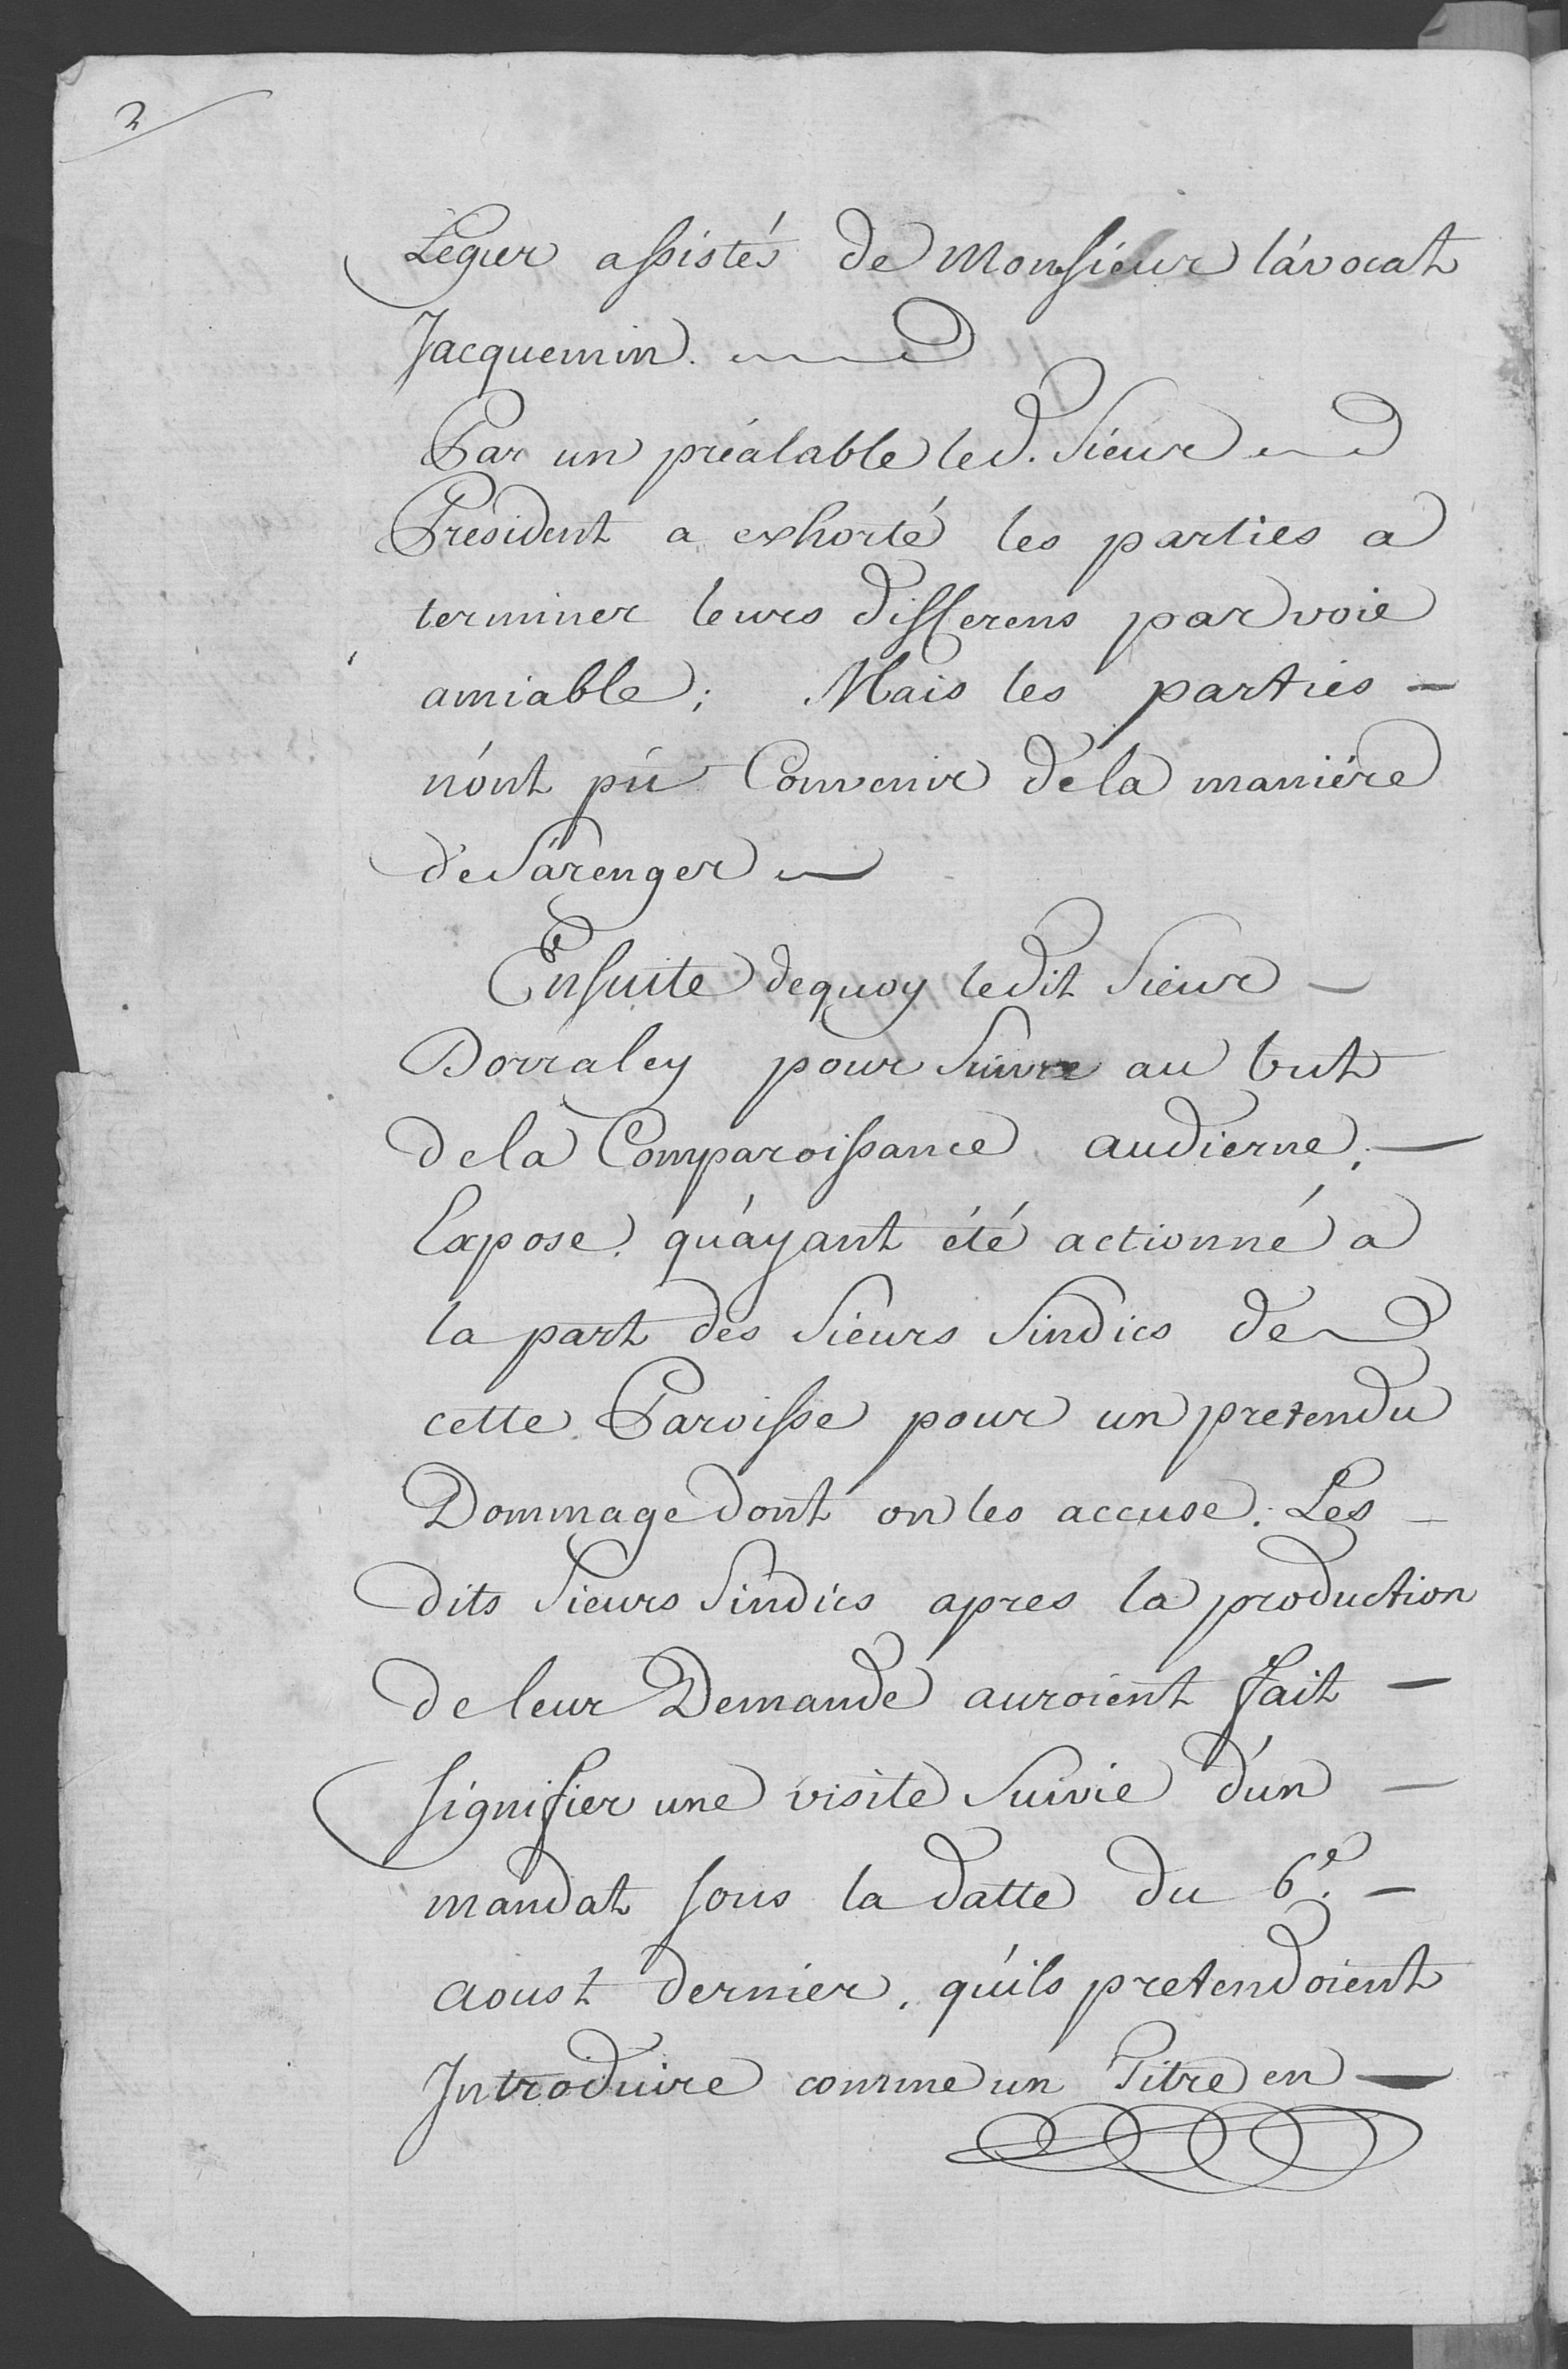 2
Leguer assistés de Monsieur l'avocat
Jacquemin.
Par un préalable led. Sieur
Président a exhorté les parties a
terminer leurs differens par voie
amiable; Mais les parties -
n'ont pû Convenir de la maniére
de S'arenger
Ensuite de quoy le dit Sieur -
Dorraley pour Suivre au but
de la Comparoissance audierne, -
Expose, qu'ayant été actionné a
la part des Sieurs Sindics de
cette Paroisse pour un pretendu
Dommage dont on les accuse. Les -
dits Sieurs Sindics apres la production
de leur Demande auroient fait -
signifier une visite Suivie d'un -
mandat sous la datte du 6e. -
aoust dernier, qu'ils pretendoient
Introduire comme un Titre en -